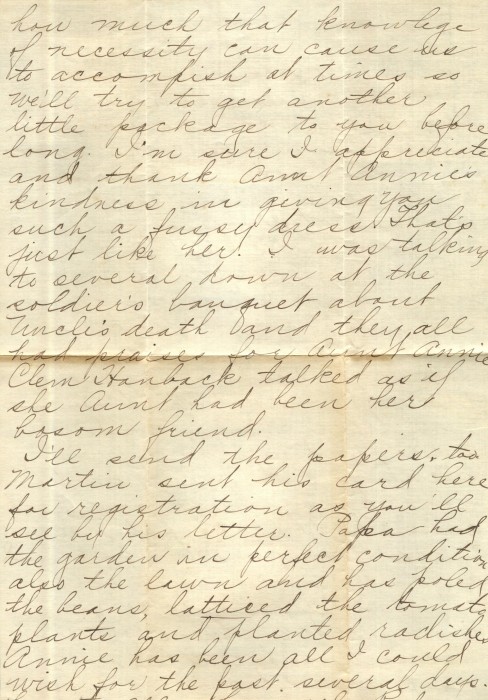 how much that knowlege
of necessity can cause us
to accomplish at times so
we'll try to get another
little package to you before
long. I'm sure I appreciate
and thank Aunt Annie's
kindness in giving you
such a fussy dress. That's
just like her. I was talking
to several down at the
soldier's banquet about
Uncle's death and they all
had praises for Aunt Annie
Clem Hanback talked as if
she Aunt had been her
bosom friend.
I'll send the papers. too
Martin sent his card here
for registration as you'll
see by his letter. Papa had
the garden in perfect condition
also the lawn and has poled
the beans, latticed the tomato
plants and planted radishes
Annie has been all I could
wish for the past several days.